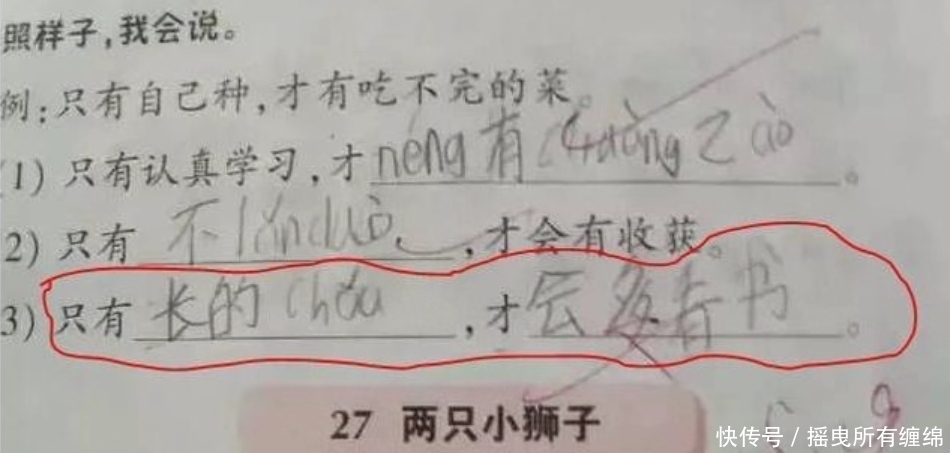 照样子,我会说。
例:只有自己种,才有吃不完的菜。
(1) 只有认真学习,才néng有chuàng zào。
2) 只有 不lǎnduò ,才会有收获。
3) 只有 长的chǒu ,才会多看书。
27 两只小狮子
快传号 / 摇曳所有缠绵